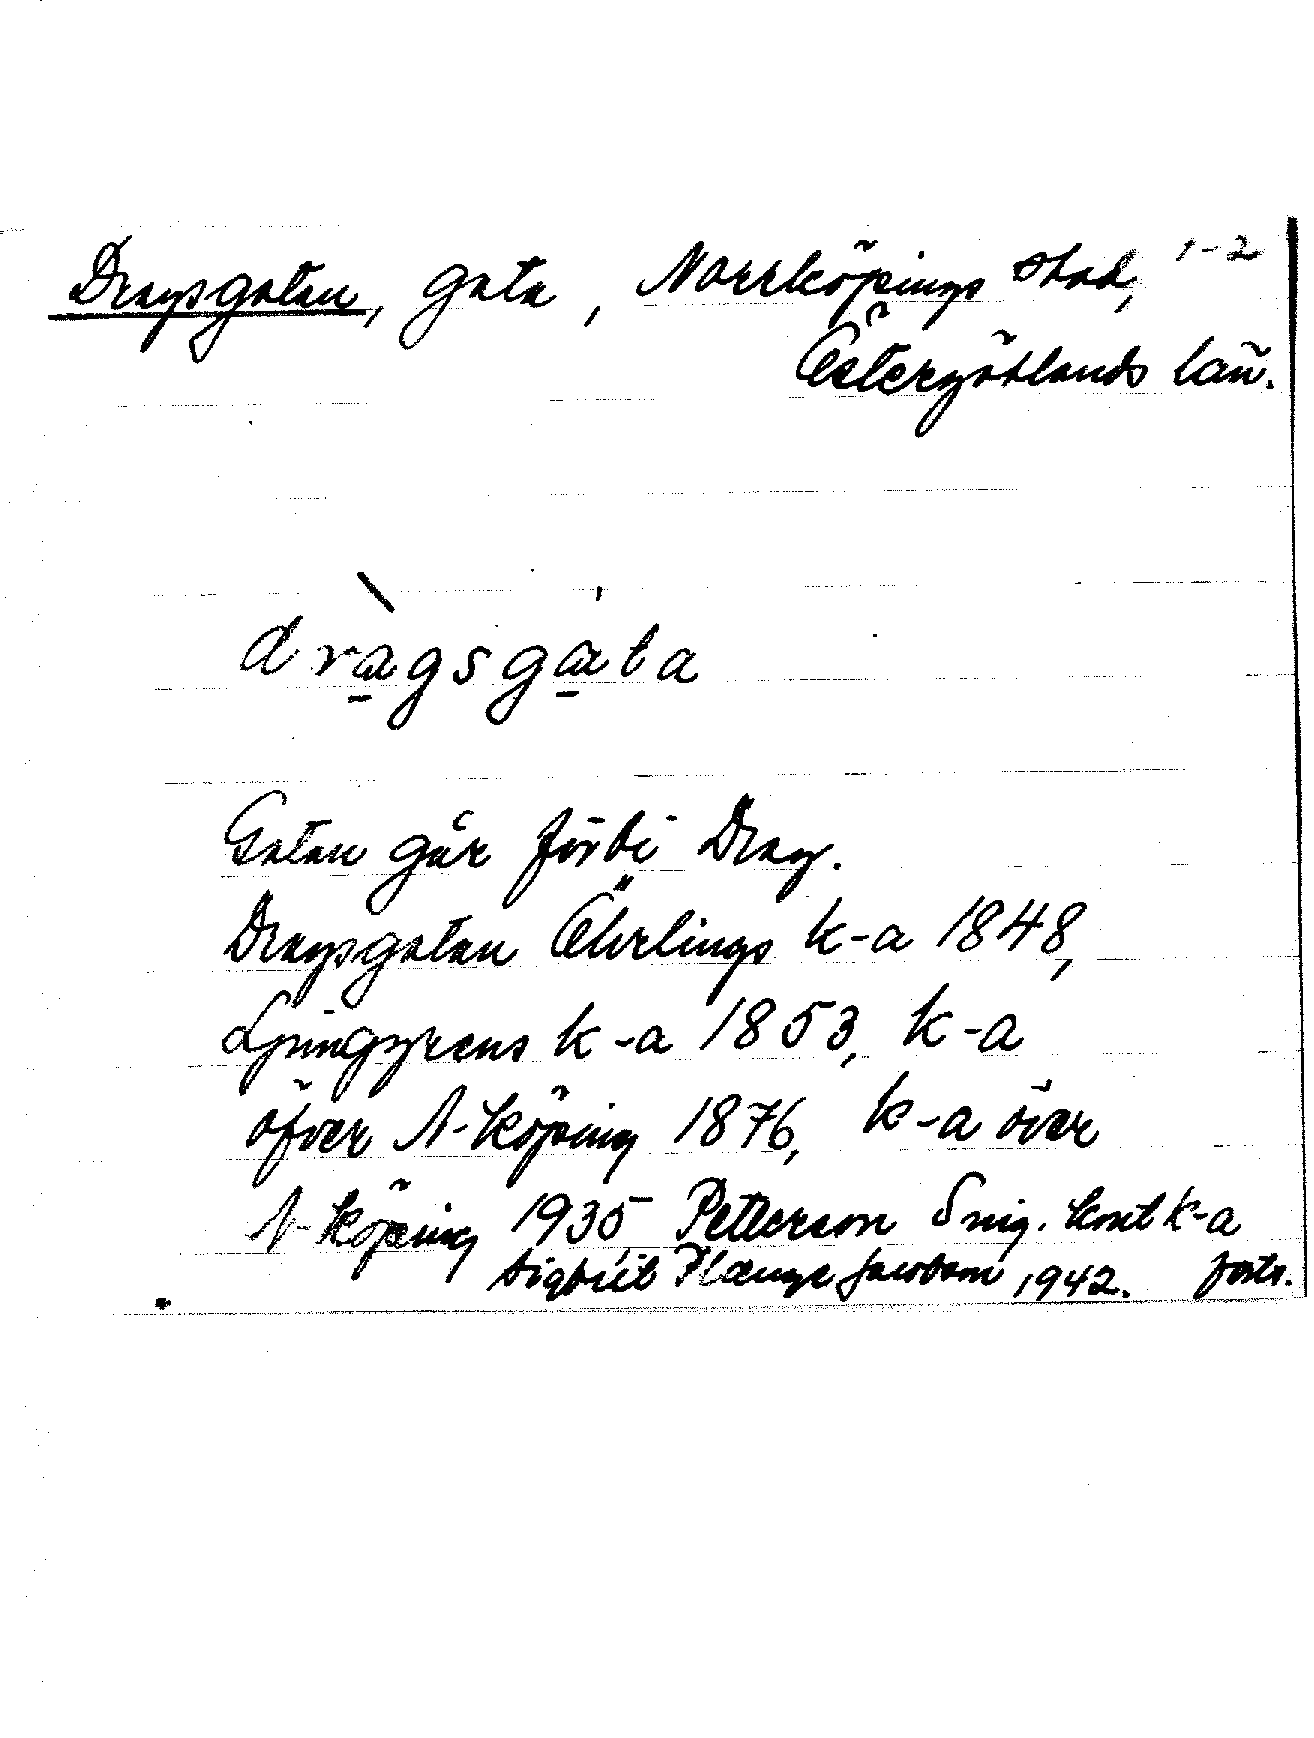 Dragsgatan, gata, Norrköpings stad, 1-2
Östergötlands län.
dràgsgàta
Gatan går förbi Drag.
Dragsgatan Öhrlings k-a 1848,
Ljunggrens k-a 1853, k-a
öfver N-köping 1876, k-a över
N-köping 1935 Petterson k-a
Sigbrit Plænge Jacobson 1942. forts.